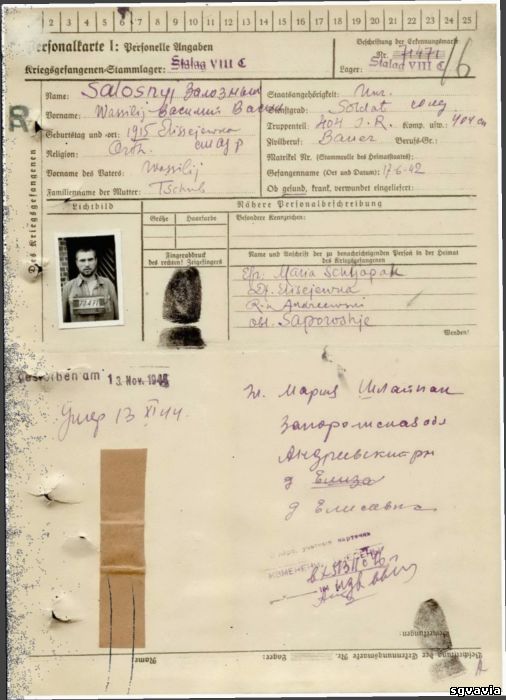 2 3 4 5 6 7 8 9 10 11 12 13 14 15 16 17 18 19 20 21 22 23 24 25
Personalkarte I: Personelle Angaben
Kriegsgefangenen-Stammlager: Stalag VIII C
Beschriftung der Erkennungsmarke
Nr. 71471
Lager: Stalag VIII C
Des Kriegsgefangenen
R
Name: Salosny Залозный
Vorname: Wassilij Василий
Geburtstag und -ort: 1915 Elissejewna
Religion: Orth.
Vorname des Vaters: Wassilij
Familienname der Mutter: Tschub
Staatsangehörigkeit: Ukr.
Dienstgrad: Soldat солд
Truppenteil: 404 J.R. Komp. usw.: 404 сп
Zivilberuf: Bauer Berufs-Gr.:
Matrikel Nr. (Stammrolle des Heimatstaates):
Gefangennahme (Ort und Datum): 17-6-42
Ob gesund, krank, verwundet eingeliefert:
Lichtbild
Nähere Personalbeschreibung
Größe Haarfarbe
Besondere Kennzeichen:
Fingerabdruck
des rechten! Zeigefingers
Name und Anschrift der zu benachrichtigenden Person in der Heimat
des Kriegsgefangenen
Efr. Maria Schljapak
D. Elissejewna
R-n Andreewski
obl. Saporoshje
Wenden!
Gestorben am 13. Nov. 1944
Умер 13 XI 44.
Мария Шляпак
Запорожская обл
Андреевский рн
д Елиза
д Елисавна
учетная карточка
Bemerkungen:
Beschriftung der Erkennungsmarke Nr. Lager: Name
sgvavia